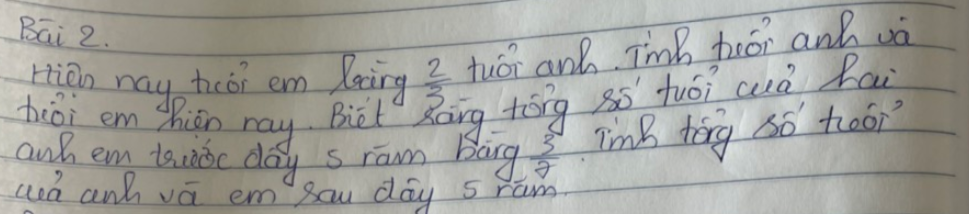 Bài 2.
Hiện nay tuổi em bằng 2/3 tuổi anh. Tính tuổi anh và
tuổi em hiện nay. Biết rằng tổng số tuổi của hai
anh em trước đây 5 năm bằng 3/7. Tính tổng số tuổi
của anh và em sau đây 5 năm.